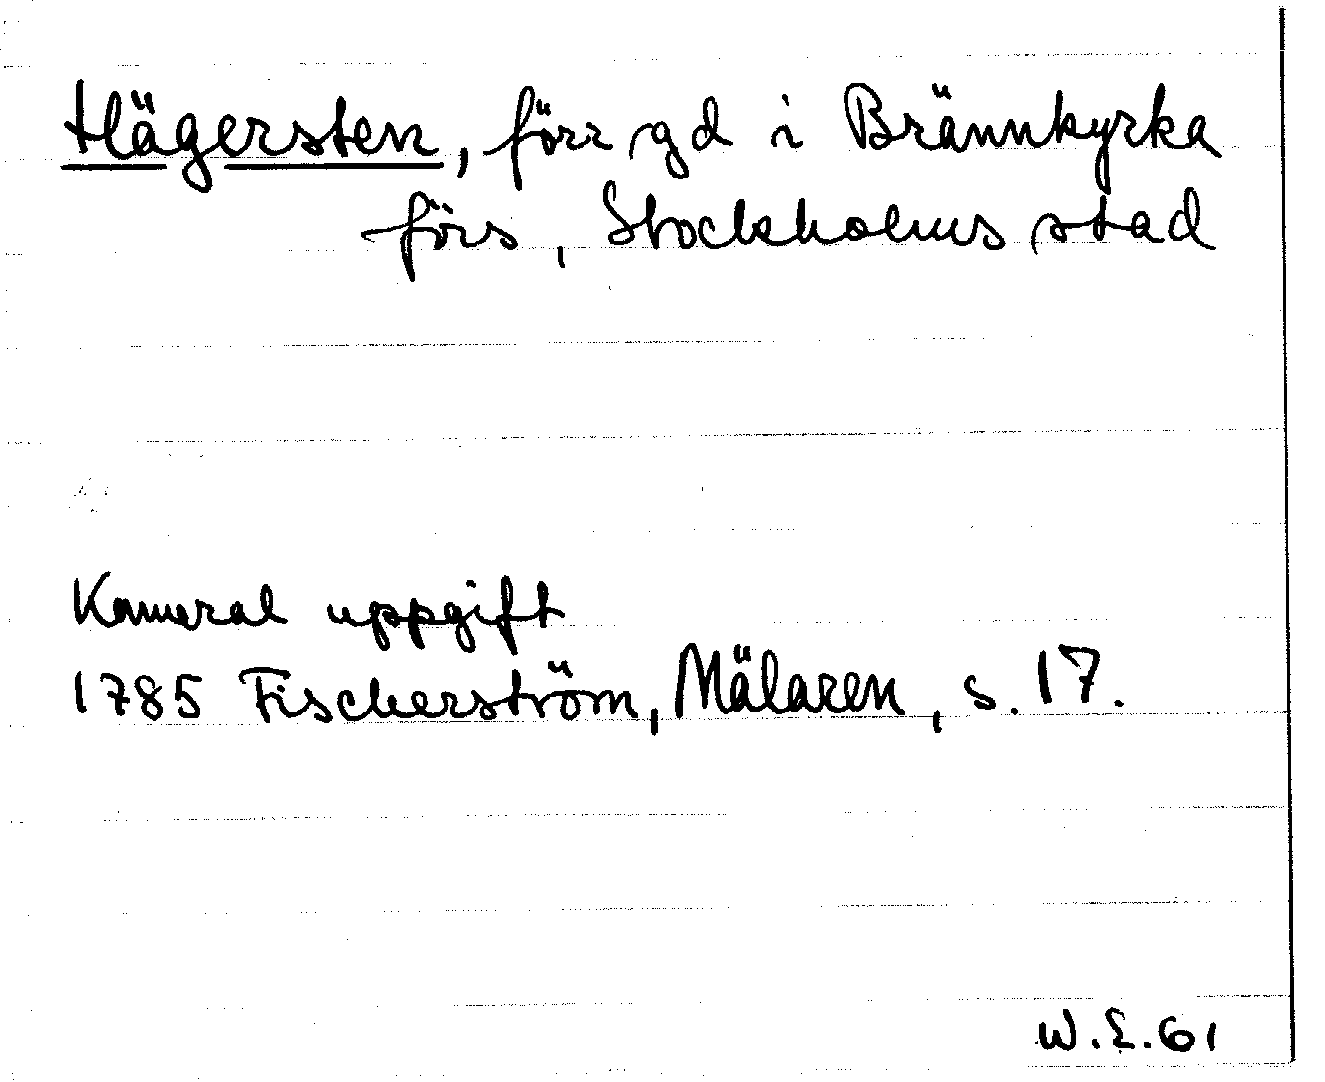 Hägersten, förr gd i Brännkyrka
förs, Stockholms stad
Kameral uppgift
1785 Fischerström, Mälaren, s. 17.
W.E.61